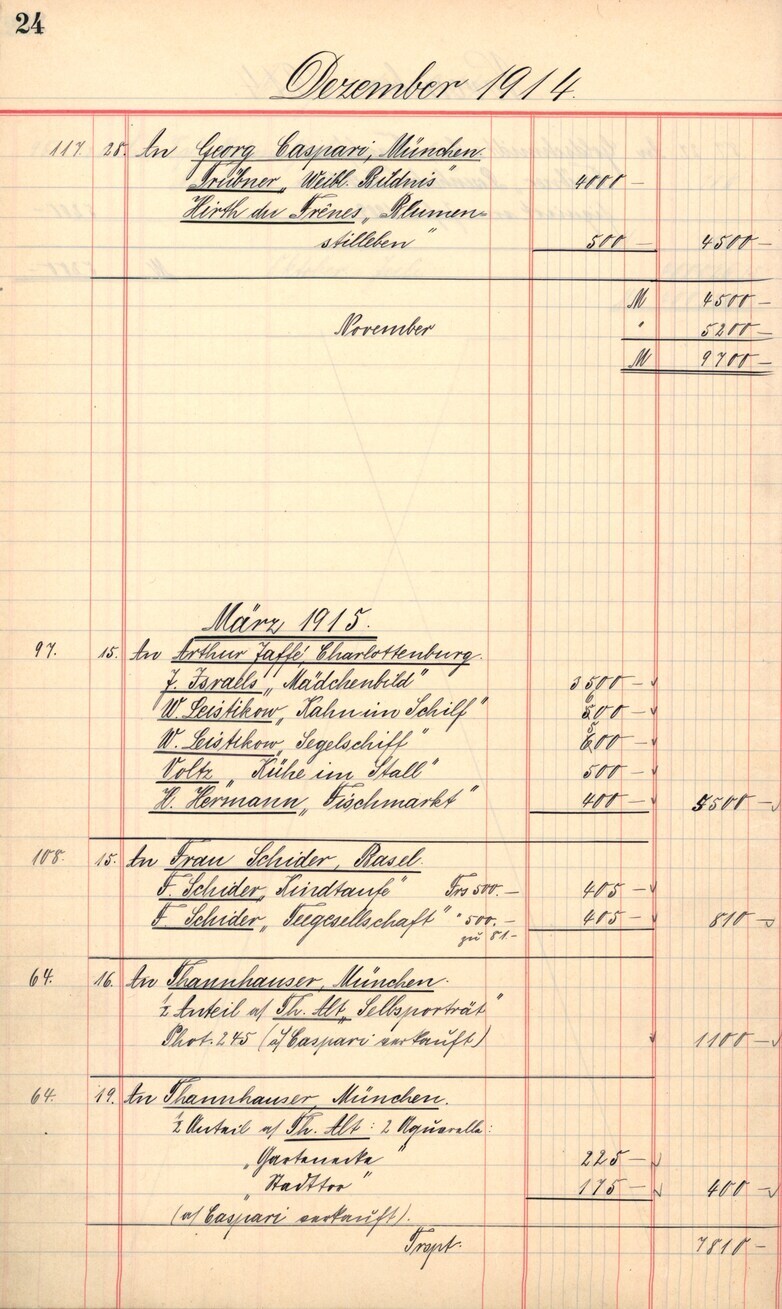 24
Dezember 1914.
117. 28. An Georg Caspari, München.
Trübner „Weibl. Bildnis" 4000 —
Hirth du Frênes „Blumen-
stilleben" 500 — 4500 —
M 4500 —
November " 5200 —
M 9700 —
März 1915.
97. 15. An Arthur Jaffé, Charlottenburg.
J. Israels „Mädchenbild" 3500 —
W. Leistikow „Kahn im Schilf" 600 —
W. Leistikow „Segelschiff" 500 —
Voltz „Kühe im Stall" 500 —
H. Hermann „Fischmarkt" 400 — 5500 —
108. 15. An Frau Schider, Basel.
F. Schider „Kindtaufe" Frs 500.— 405 —
F. Schider „Teegesellschaft" " 500.— 405 — 810 —
zu 81 —
64. 16. An Thannhauser, München.
½ Anteil a/ Th. Alt „Selbsporträt"
Phot. 245 (a/ Caspari verkauft) 1100 —
64. 19. An Thannhauser, München.
½ Anteil a/ Th. Alt: 2 Aquarelle:
„Gartenecke" 225 —
„Stadttor" 175 — 400 —
(a/ Caspari verkauft).
Trspt. 7810 —